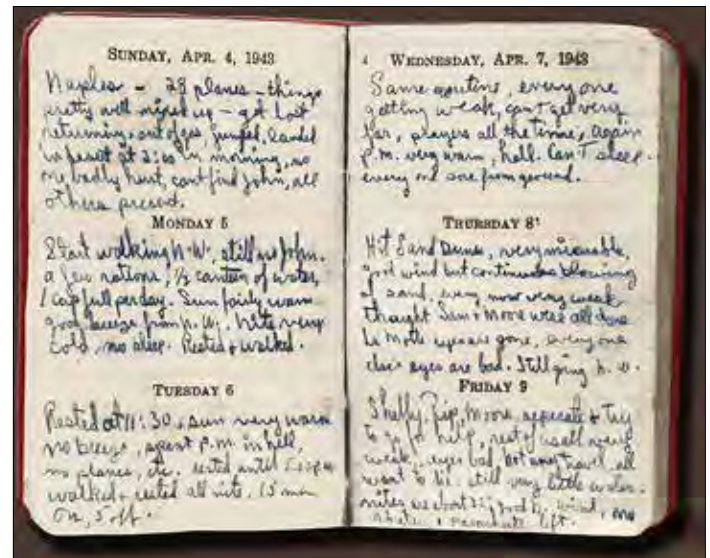 SUNDAY, APR. 4, 1943
Naples — 28 planes — things
pretty well mixed up — got lost
returning, out of gas, jumped, landed
in desert at 2:00 in morning, no
one badly hurt, cant find John, all
others present.
MONDAY 5
Start walking N.W., still no John.
a few rations, ½ canteen of water,
1 cap full per day. Sun fairly warm
good breeze from N.W. Nite very
cold, no sleep. Rested & walked.
TUESDAY 6
Rested at 11:30, sun very warm
no breeze, spent P.M. in hell,
no planes, etc. rested until 5:00 P.M.
walked & rested all nite. 15 min
on, 5 off.
4 WEDNESDAY, APR. 7, 1943
Same routine, everyone
getting weak, cant get very
far, prayers all the time, again
P.M. very warm, hell. Can't sleep.
every one sore from ground.
THURSDAY 8
Hit Sand Dunes, very miserable,
good wind but continuous blowing
of sand, every now very weak
thought Sam & Moore were all done
La Motte eyes are gone, everyone
else's eyes are bad. Still going N.W.
FRIDAY 9
Shelly, Rip, Moore seperate & try
to go for help, rest of us all very
weak, eyes bad, not any travel, all
want to die. still very little water.
nites are about 35, good N. wind, no
shelter, 1 parachute left.